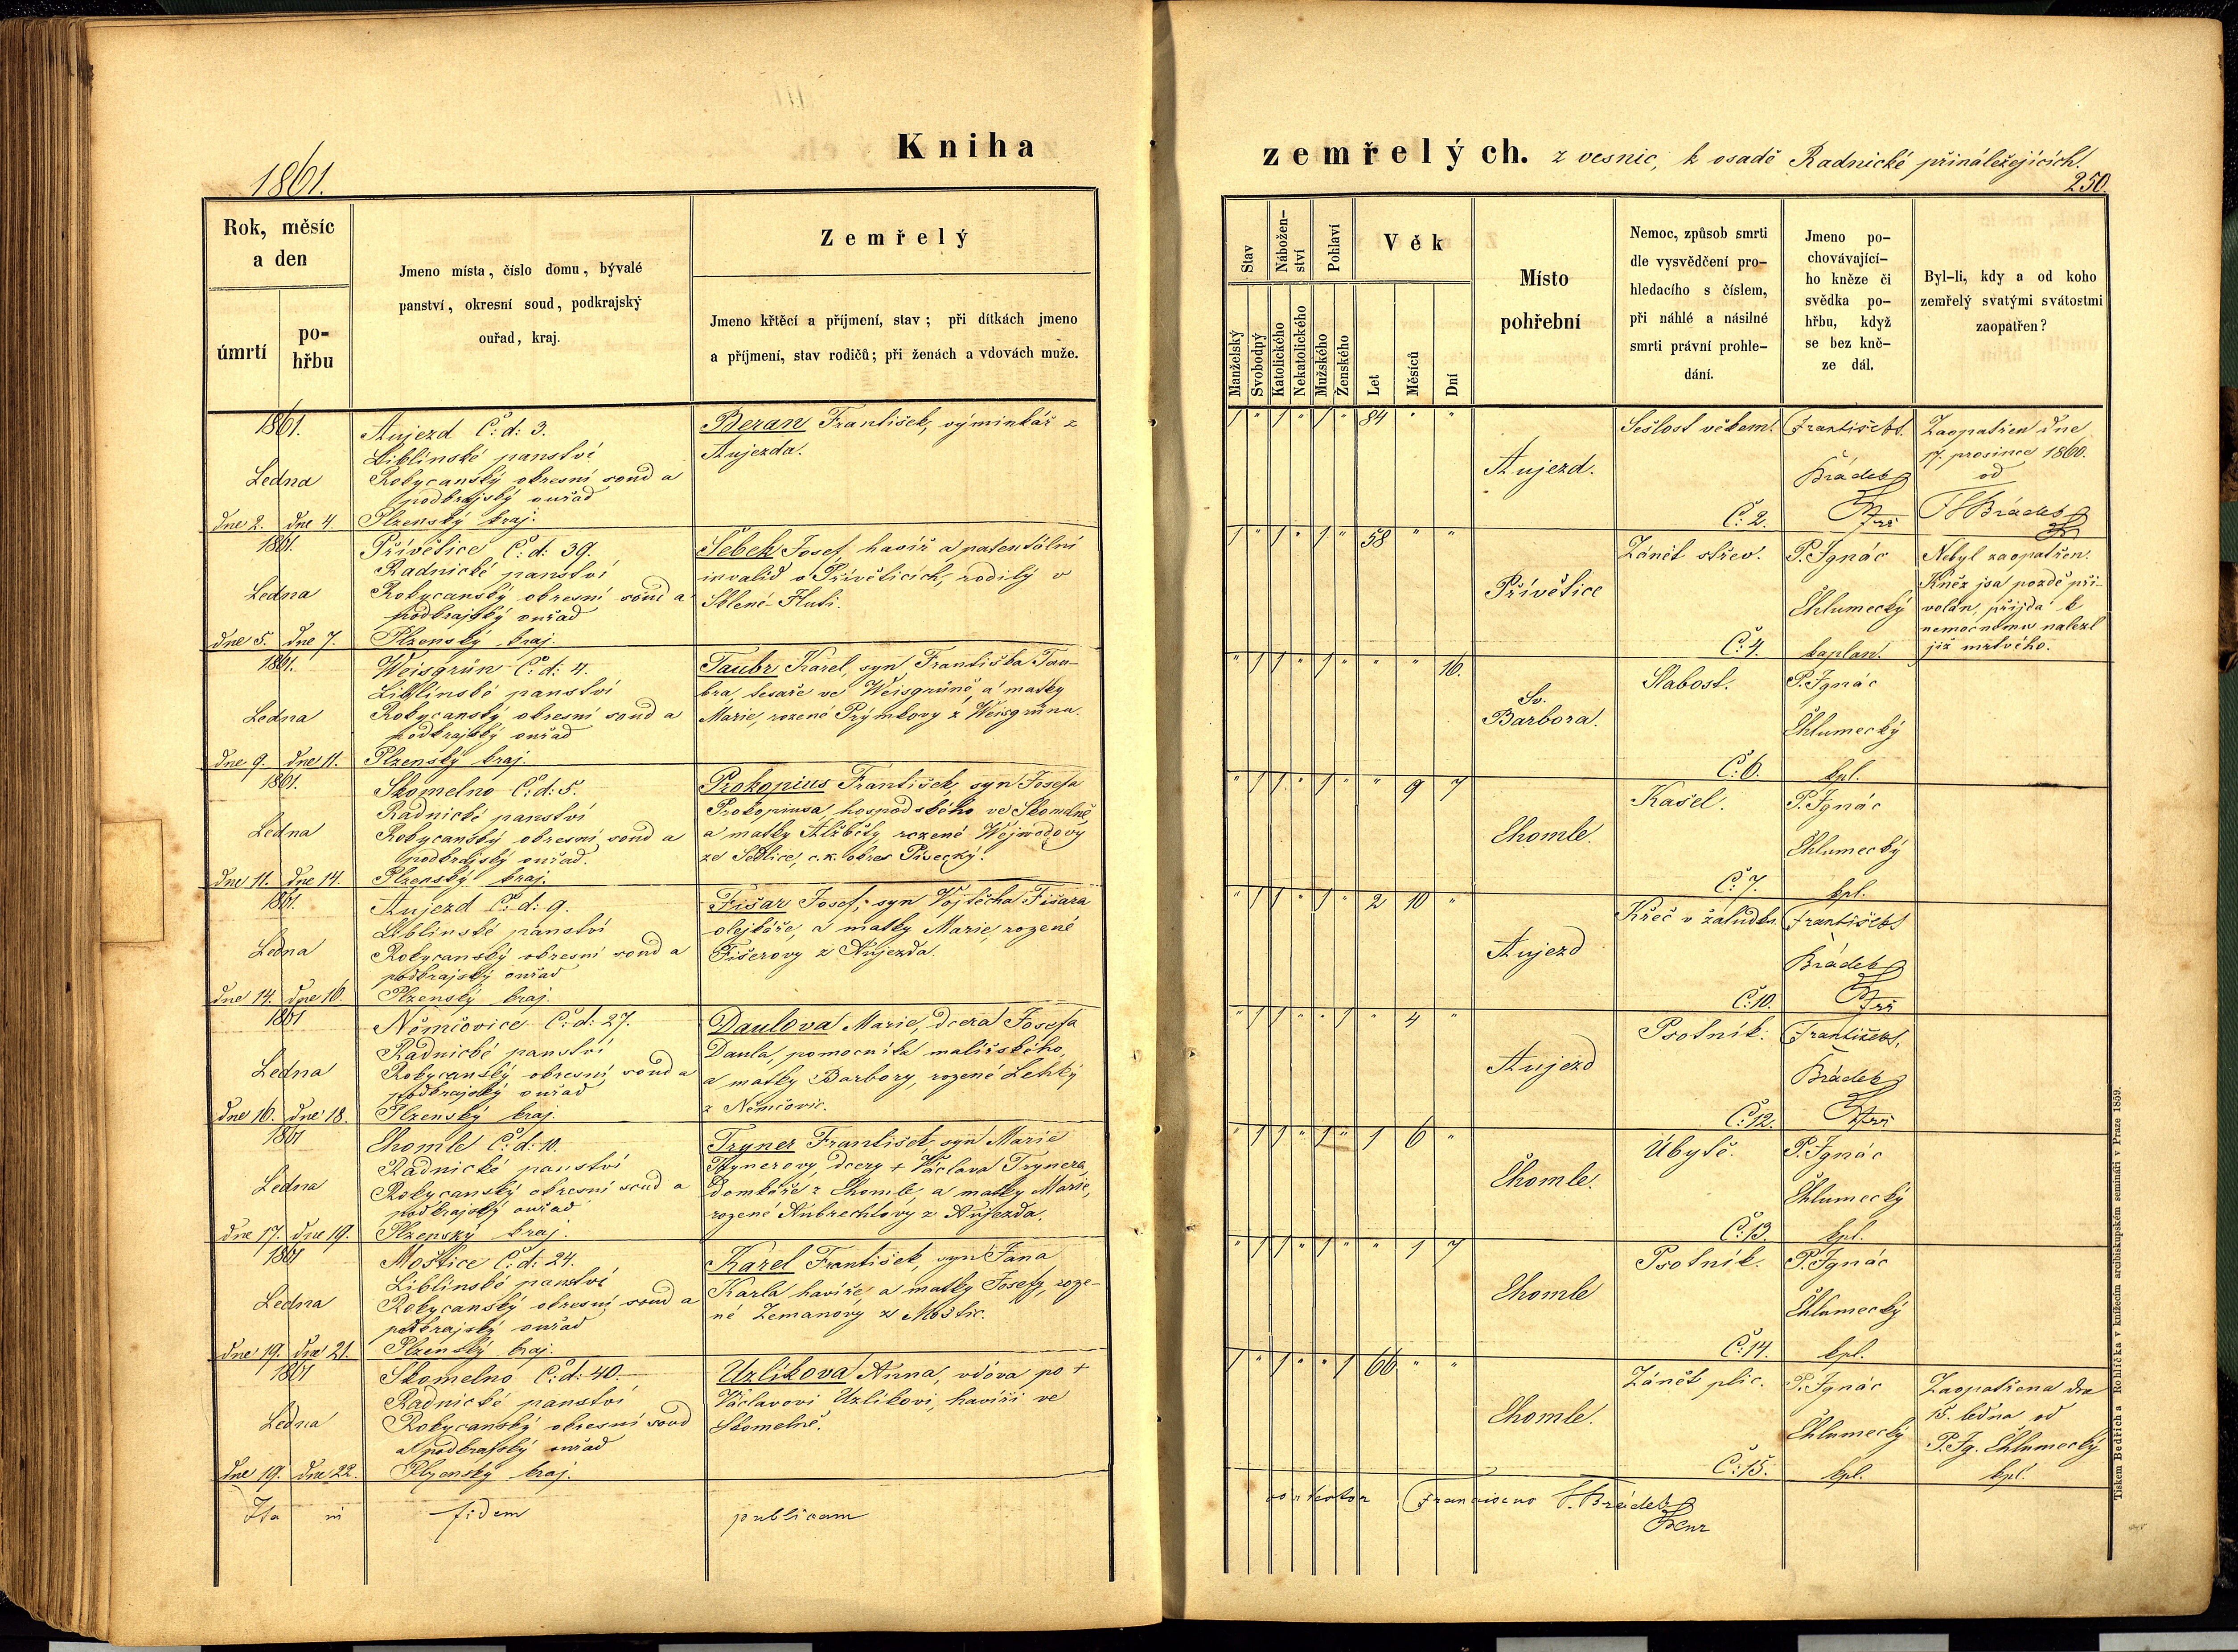 Kniha
zemřelých. z vesnic, k osadě Radnické přináležejících.
1861.
250.
Rok, měsíc
a den
úmrtí
po-
hřbu
Jmeno místa, číslo domu, bývalé
panství, okresní soud, podkrajský
ouřad, kraj.
Zemřelý
Jmeno křtěcí a příjmení, stav; při dítkách jmeno
a příjmení, stav rodičů; při ženách a vdovách muže.
Stav
Nábožen-
ství
Pohlaví
Věk
Manželský
Svobodný
Katolického
Nekatolického
Mužského
Ženského
Let
Měsíců
Dní
Místo
pohřební
Nemoc, způsob smrti
dle vysvědčení pro-
hledacího s číslem,
při náhlé a násilné
smrti právní prohle-
dání.
Jmeno po-
chovávající-
ho kněze či
svědka po-
hřbu, když
se bez kně-
ze dál.
Byl-li, kdy a od koho
zemřelý svatými svátostmi
zaopatřen?
1861.
Ledna
dne 2. dne 4.
Aujezd Č: d: 3.
Liblinské panství
Rokycanský okresní soud a
podkrajský ouřad
Plzenský kraj.
Beran František, výminkář z
Aujezda.
1 " 1 " 1 " 84 " "
Aujezd.
Sešlost věkem.
Č: 2.
František
Brádek
Zaopatřen dne
17. prosince 1860.
od
Brádek
1861.
Ledna
dne 5. dne 7.
Přívětice Č: d: 39.
Radnické panství
Rokycanský okresní soud a
podkrajský ouřad
Plzenský kraj.
Šebek Josef, havíř a patentální
invalid v Přívěticích, rodilý v
Sklené-Huti.
1 " 1 " 1 " 58 " "
Přívětice
Zánět střev.
Č: 4.
P. Ignác
Chlumecký
kaplan.
Nebyl zaopatřen.
Kněz jsa pozdě při-
volán, přijda k
nemocnému nalezl
již mrtvého.
1861.
Ledna
dne 9. dne 11.
Weisgrün Č: d: 4.
Liblinské panství
Rokycanský okresní soud a
podkrajský ouřad
Plzenský kraj.
Taubr Karel, syn Františka Tau-
bra, tesaře ve Weisgrůně, a matky
Marie, rozené Prýmkovy z Weisgrůna.
" 1 1 " 1 " " " 16.
Sv.
Barbora.
Slabost.
Č: 6.
P. Ignác
Chlumecký
kpl.
1861.
Ledna
dne 11. dne 14.
Skomelno Č: d: 5.
Radnické panství
Rokycanský okresní soud a
podkrajský ouřad.
Plzenský kraj.
Prokopius František, syn Josefa
Prokopiusa, hospodského ve Skomelně,
a matky Alžběty rozené Wejwodovy
ze Sedlice, c. k. okres Písecký.
" 1 1 " 1 " " 9 7
Chomle.
Kašel.
Č: 7.
P. Ignác
Chlumecký
kpl.
1861.
Ledna
dne 14. dne 16.
Aujezd Č: d: 9.
Liblinské panství
Rokycanský okresní soud a
podkrajský ouřad
Plzenský kraj.
Fišar Josef, syn Vojtěcha Fišara
olejkáře, a matky Marie, rozené
Fišerovy z Aujezda.
" 1 1 " 1 " 2 10 "
Aujezd
Křeč v žaludku.
Č: 10.
František
Brádek
1861
Ledna
dne 16. dne 18.
Němčovice Č: d: 27.
Radnické panství
Rokycanský okresní soud a
podkrajský ouřad
Plzenský kraj.
Daulova Marie, dcera Josefa
Daula, pomocníka malířského,
a matky Barbory, rozené Lehký
z Němčovic.
" 1 1 " " 1 " 4 "
Aujezd
Psotník.
Č: 12.
František
Brádek
1861
Ledna
dne 17. dne 19.
Chomle Č: d: 10.
Radnické panství
Rokycanský okresní soud a
podkrajský ouřad
Plzenský kraj.
Tryner František, syn Marie
Trynerovy, dcery + Václava Trynera,
domkáře z Chomle, a matky Marie,
rozené Aubrechtovy z Aujezda.
" 1 1 " 1 " 1 6 "
Chomle.
Úbytě.
Č: 13.
P. Ignác
Chlumecký
kpl.
1861
Ledna
dne 19. dne 21.
Moštice Č: d: 24.
Liblinské panství
Rokycanský okresní soud a
podkrajský ouřad
Plzenský kraj.
Karel František, syn Jana
Karla havíře, a matky Josefy, roze-
né Zemanovy z Moštic.
" 1 1 " 1 " " 1 7
Chomle
Psotník.
Č: 14.
P. Ignác
Chlumecký
kpl.
1861
Ledna
dne 19. dne 22.
Skomelno Č: d: 40.
Radnické panství
Rokycanský okresní soud
a podkrajský ouřad
Plzenský kraj.
Uzlíkova Anna, vdova po +
Václavovi Uzlíkovi, havíři ve
Skomelně.
1 " 1 " " 1 66 " "
Chomle.
Zánět plic.
Č: 15.
P. Ignác
Chlumecký
kpl.
Zaopatřena dne
15. ledna od
P. Ig. Chlumecký
kpl.
Ita in fidem publicam
Franciscus Brádek
Tiskem Bedřicha Rohlíčka v knížecím arcibiskupském semináři v Praze 1859.